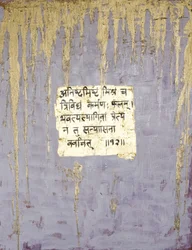 अनिष्टमिष्टं मिश्रं च
त्रिविधं कर्मणः फलम्।
भवत्यत्यागिनां प्रेत्य
न तु
क्वचित् ॥१२॥